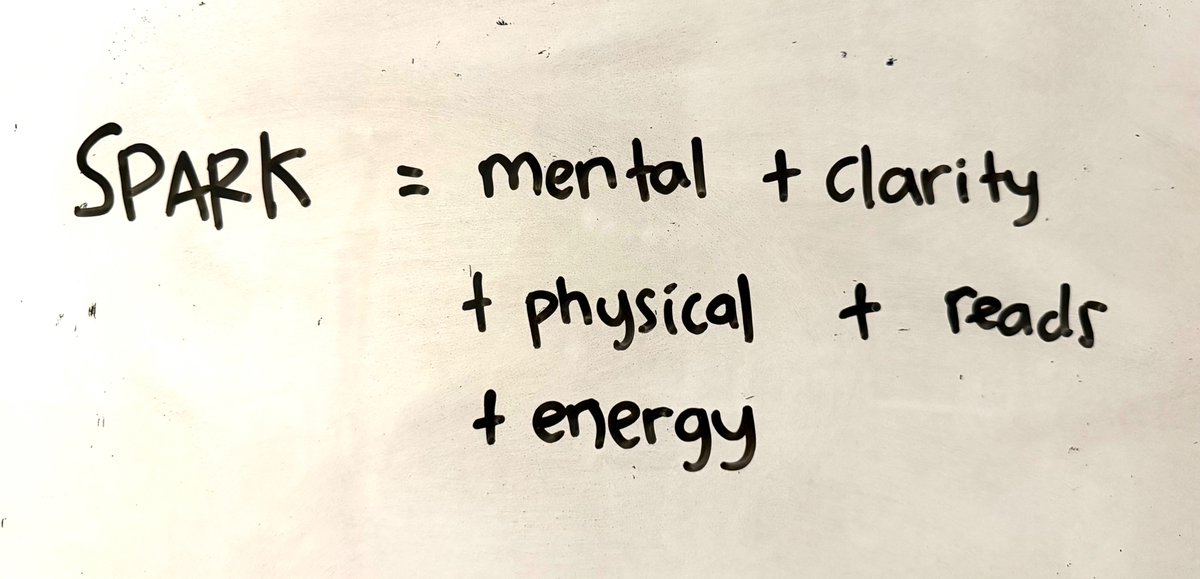 SPARK = mental + clarity
+ physical + reads
+ energy